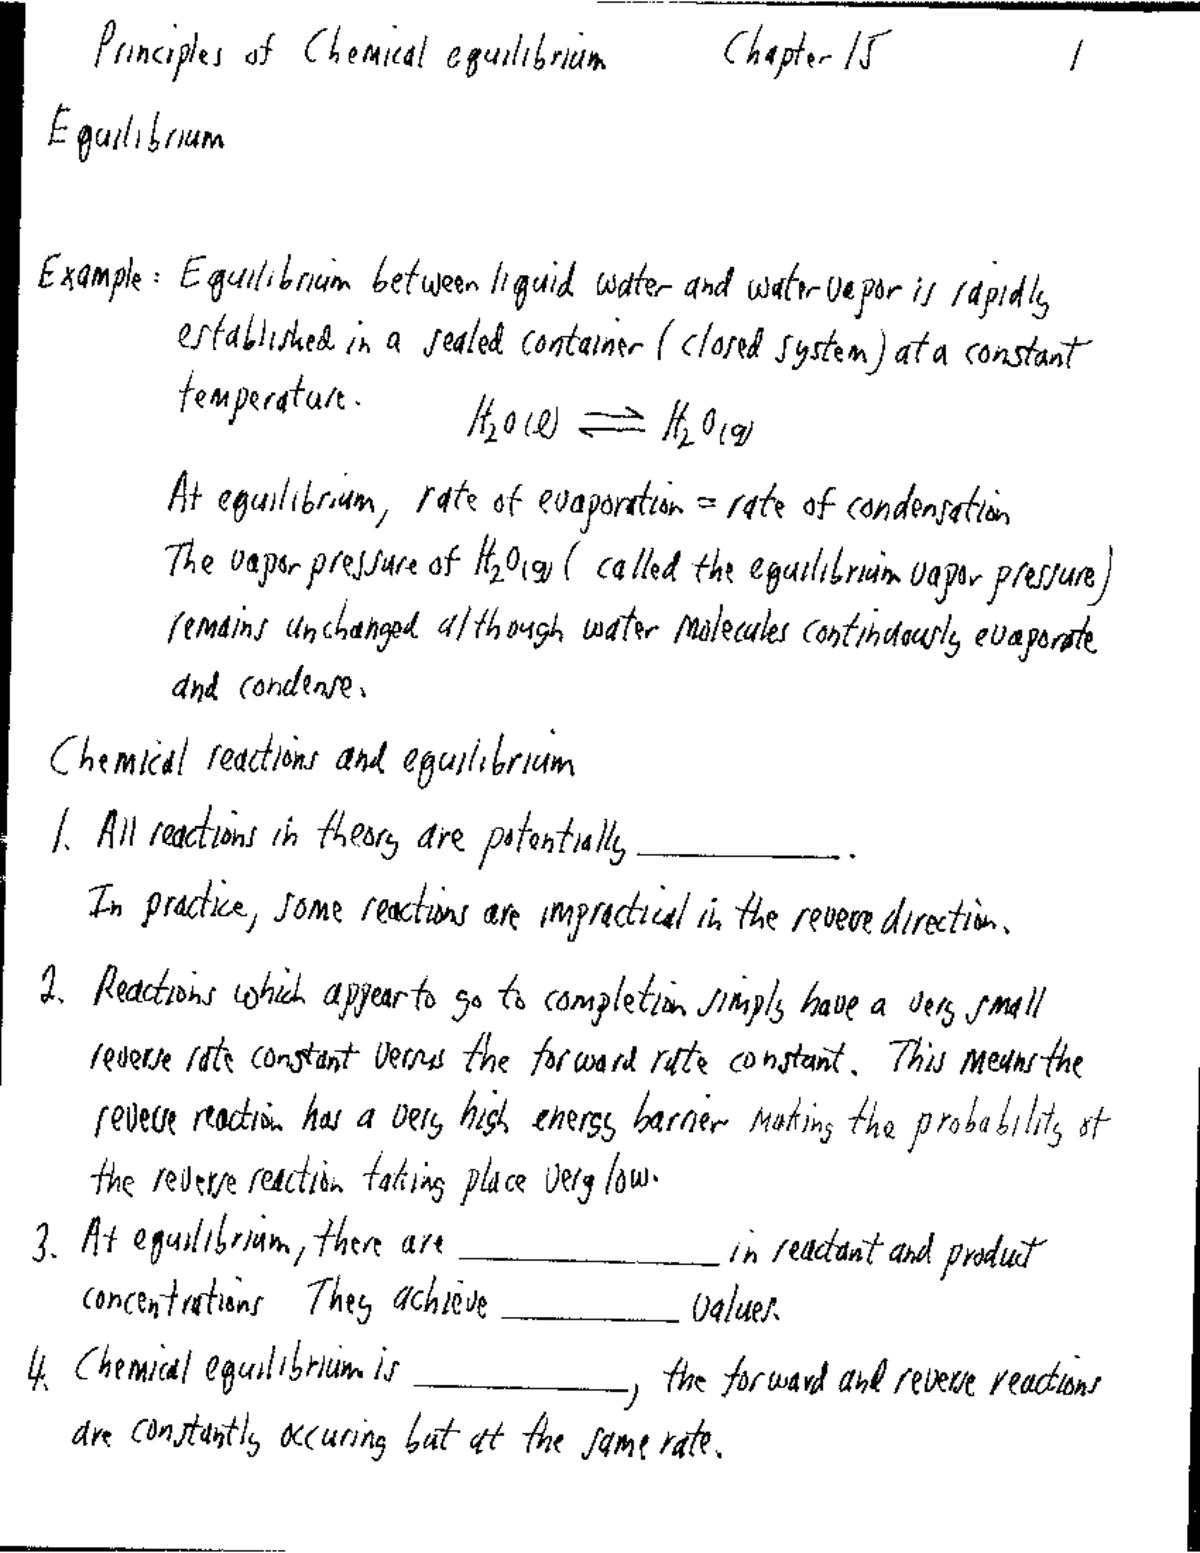 Principles of Chemical equilibrium Chapter 15 1
Equilibrium
Example: Equilibrium between liquid water and water vapor is rapidly
established in a sealed container (closed system) at a constant
temperature.
H₂O(l) ⇌ H₂O(g)
At equilibrium, rate of evaporation = rate of condensation
The vapor pressure of H₂O(g) (called the equilibrium vapor pressure)
remains unchanged although water molecules continuously evaporate
and condense.
Chemical reactions and equilibrium
1. All reactions in theory are potentially __________.
In practice, some reactions are impractical in the revere direction.
2. Reactions which appear to go to completion simply have a very small
reverse rate constant versus the forward rate constant. This means the
reverse reaction has a very high energy barrier making the probability of
the reverse reaction taking place very low.
3. At equilibrium, there are __________ in reactant and product
concentrations They achieve __________ values.
4. Chemical equilibrium is __________, the forward and reverse reactions
are constantly occuring but at the same rate.